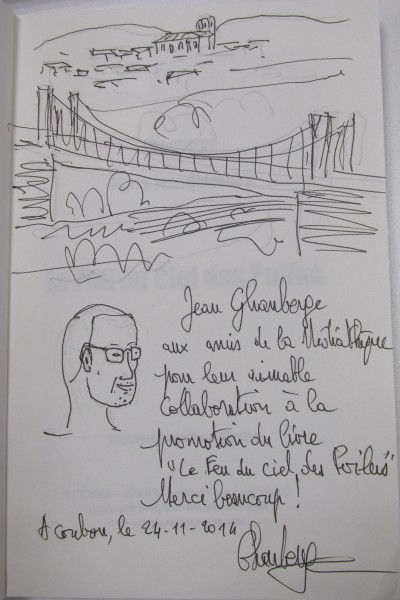 Jean Ghanberge
aux amis de la Médiathèque
pour leur aimable
Collaboration à la
promotion du livre
"Le Feu du ciel des Poilus"
Merci beaucoup !
A coubou, le 24-11-2014